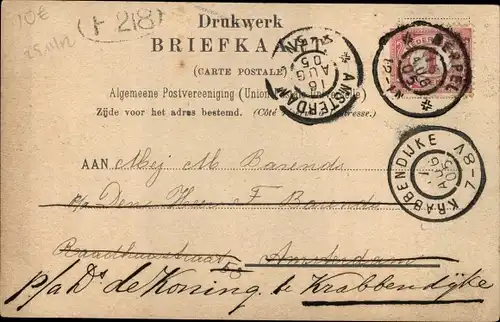 10€
(+ 218)
Drukwerk
BRIEFKAART
(CARTE POSTALE)
Algemeene Postvereeniging (Union
Zijde voor het adres bestemd. (Côté
AMSTERDAM
16 AUG 05
MEPPEL
AUG 05
KRABBENDIJKE 7-8V
AUG 05
AAN Mej M Barends
p/a Den Heer F Barends
Raadhuisstraat 58 Amsterdam
p/a Ds de Koning te Krabbendijke